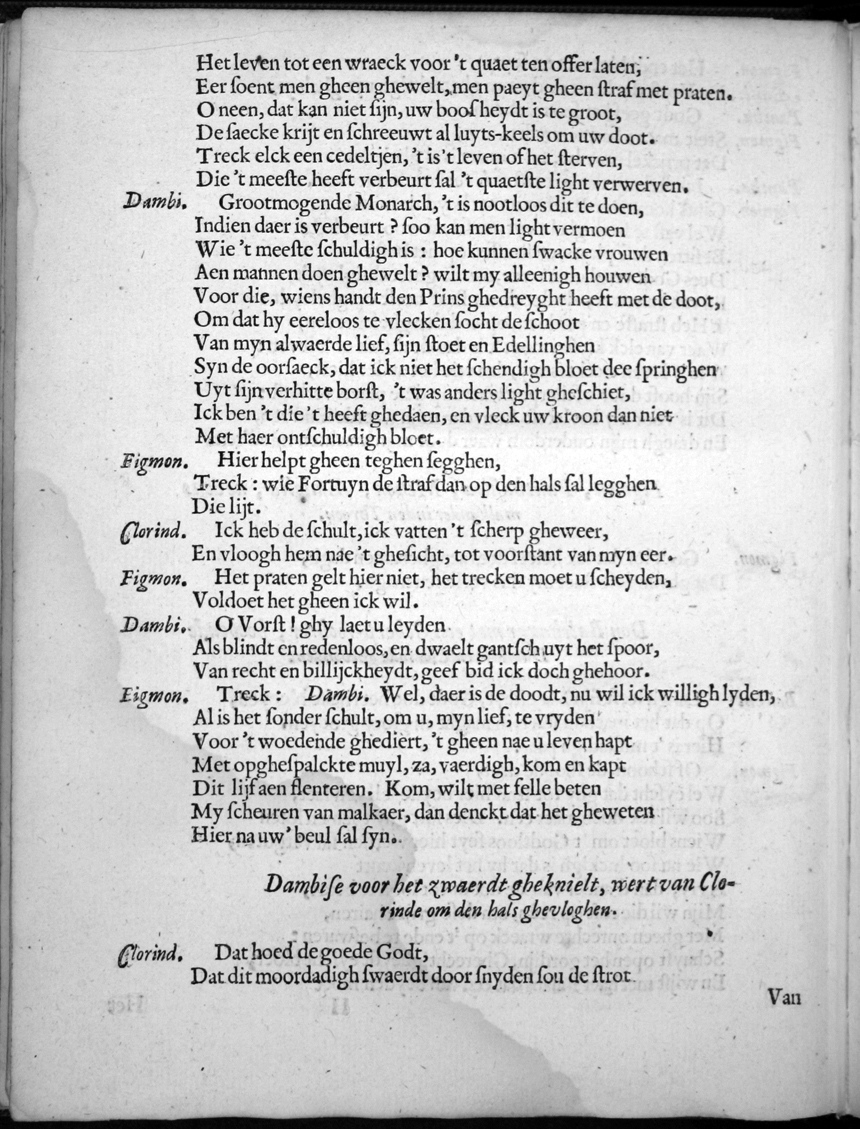 Het leven tot een wraeck voor 't quaet ten offer laten;
Eer ſoent men gheen ghewelt, men paeyt gheen ſtraf met praten.
O neen, dat kan niet ſijn, uw booſheydt is te groot,
De ſaecke krijt en ſchreeuwt al luyts-keels om uw doot.
Treck elck een cedeltjen, 't is 't leven of het ſterven,
Die 't meeſte heeft verbeurt ſal 't quaetſte light verwerven.
Dambi. Grootmogende Monarch, 't is nootloos dit te doen,
Indien daer is verbeurt ? ſoo kan men light vermoen
Wie 't meeſte ſchuldigh is : hoe kunnen ſwacke vrouwen
Aen mannen doen ghewelt ? wilt my alleenigh houwen
Voor die, wiens handt den Prins ghedreyght heeft met de doot,
Om dat hy eereloos te vlecken ſocht de ſchoot
Van myn alwaerde lief, ſijn ſtoet en Edellinghen
Syn de oorſaeck, dat ick niet het ſchendigh bloet dee ſpringhen
Uyt ſijn verhitte borſt, 't was anders light gheſchiet,
Ick ben 't die 't heeft ghedaen, en vleck uw kroon dan niet
Met haer ontſchuldigh bloet.
Figmon. Hier helpt gheen teghen ſegghen,
Treck : wie Fortuyn de ſtraf dan op den hals ſal legghen
Die lijt.
Clorind. Ick heb de ſchult, ick vatten 't ſcherp gheweer,
En vloogh hem nae 't gheſicht, tot voorſtant van myn eer.
Figmon. Het praten gelt hier niet, het trecken moet u ſcheyden,
Voldoet het gheen ick wil.
Dambi. O Vorſt ! ghy laet u leyden
Als blindt en redenloos, en dwaelt gantſch uyt het ſpoor,
Van recht en billijckheydt, geef bid ick doch ghehoor.
Figmon. Treck : Dambi. Wel, daer is de doodt, nu wil ick willigh lyden,
Al is het ſonder ſchult, om u, myn lief, te vryden
Voor 't woedende ghediert, 't gheen nae u leven hapt
Met opgheſpalckte muyl, za, vaerdigh, kom en kapt
Dit lijf aen flenteren. Kom, wilt met felle beten
My ſcheuren van malkaer, dan denckt dat het gheweten
Hier na uw' beul ſal ſyn.
Dambiſe voor het zwaerdt gheknielt, wert van Clo-
rinde om den hals ghevloghen.
Clorind. Dat hoed de goede Godt,
Dat dit moordadigh ſwaerdt door ſnyden ſou de ſtrot
Van